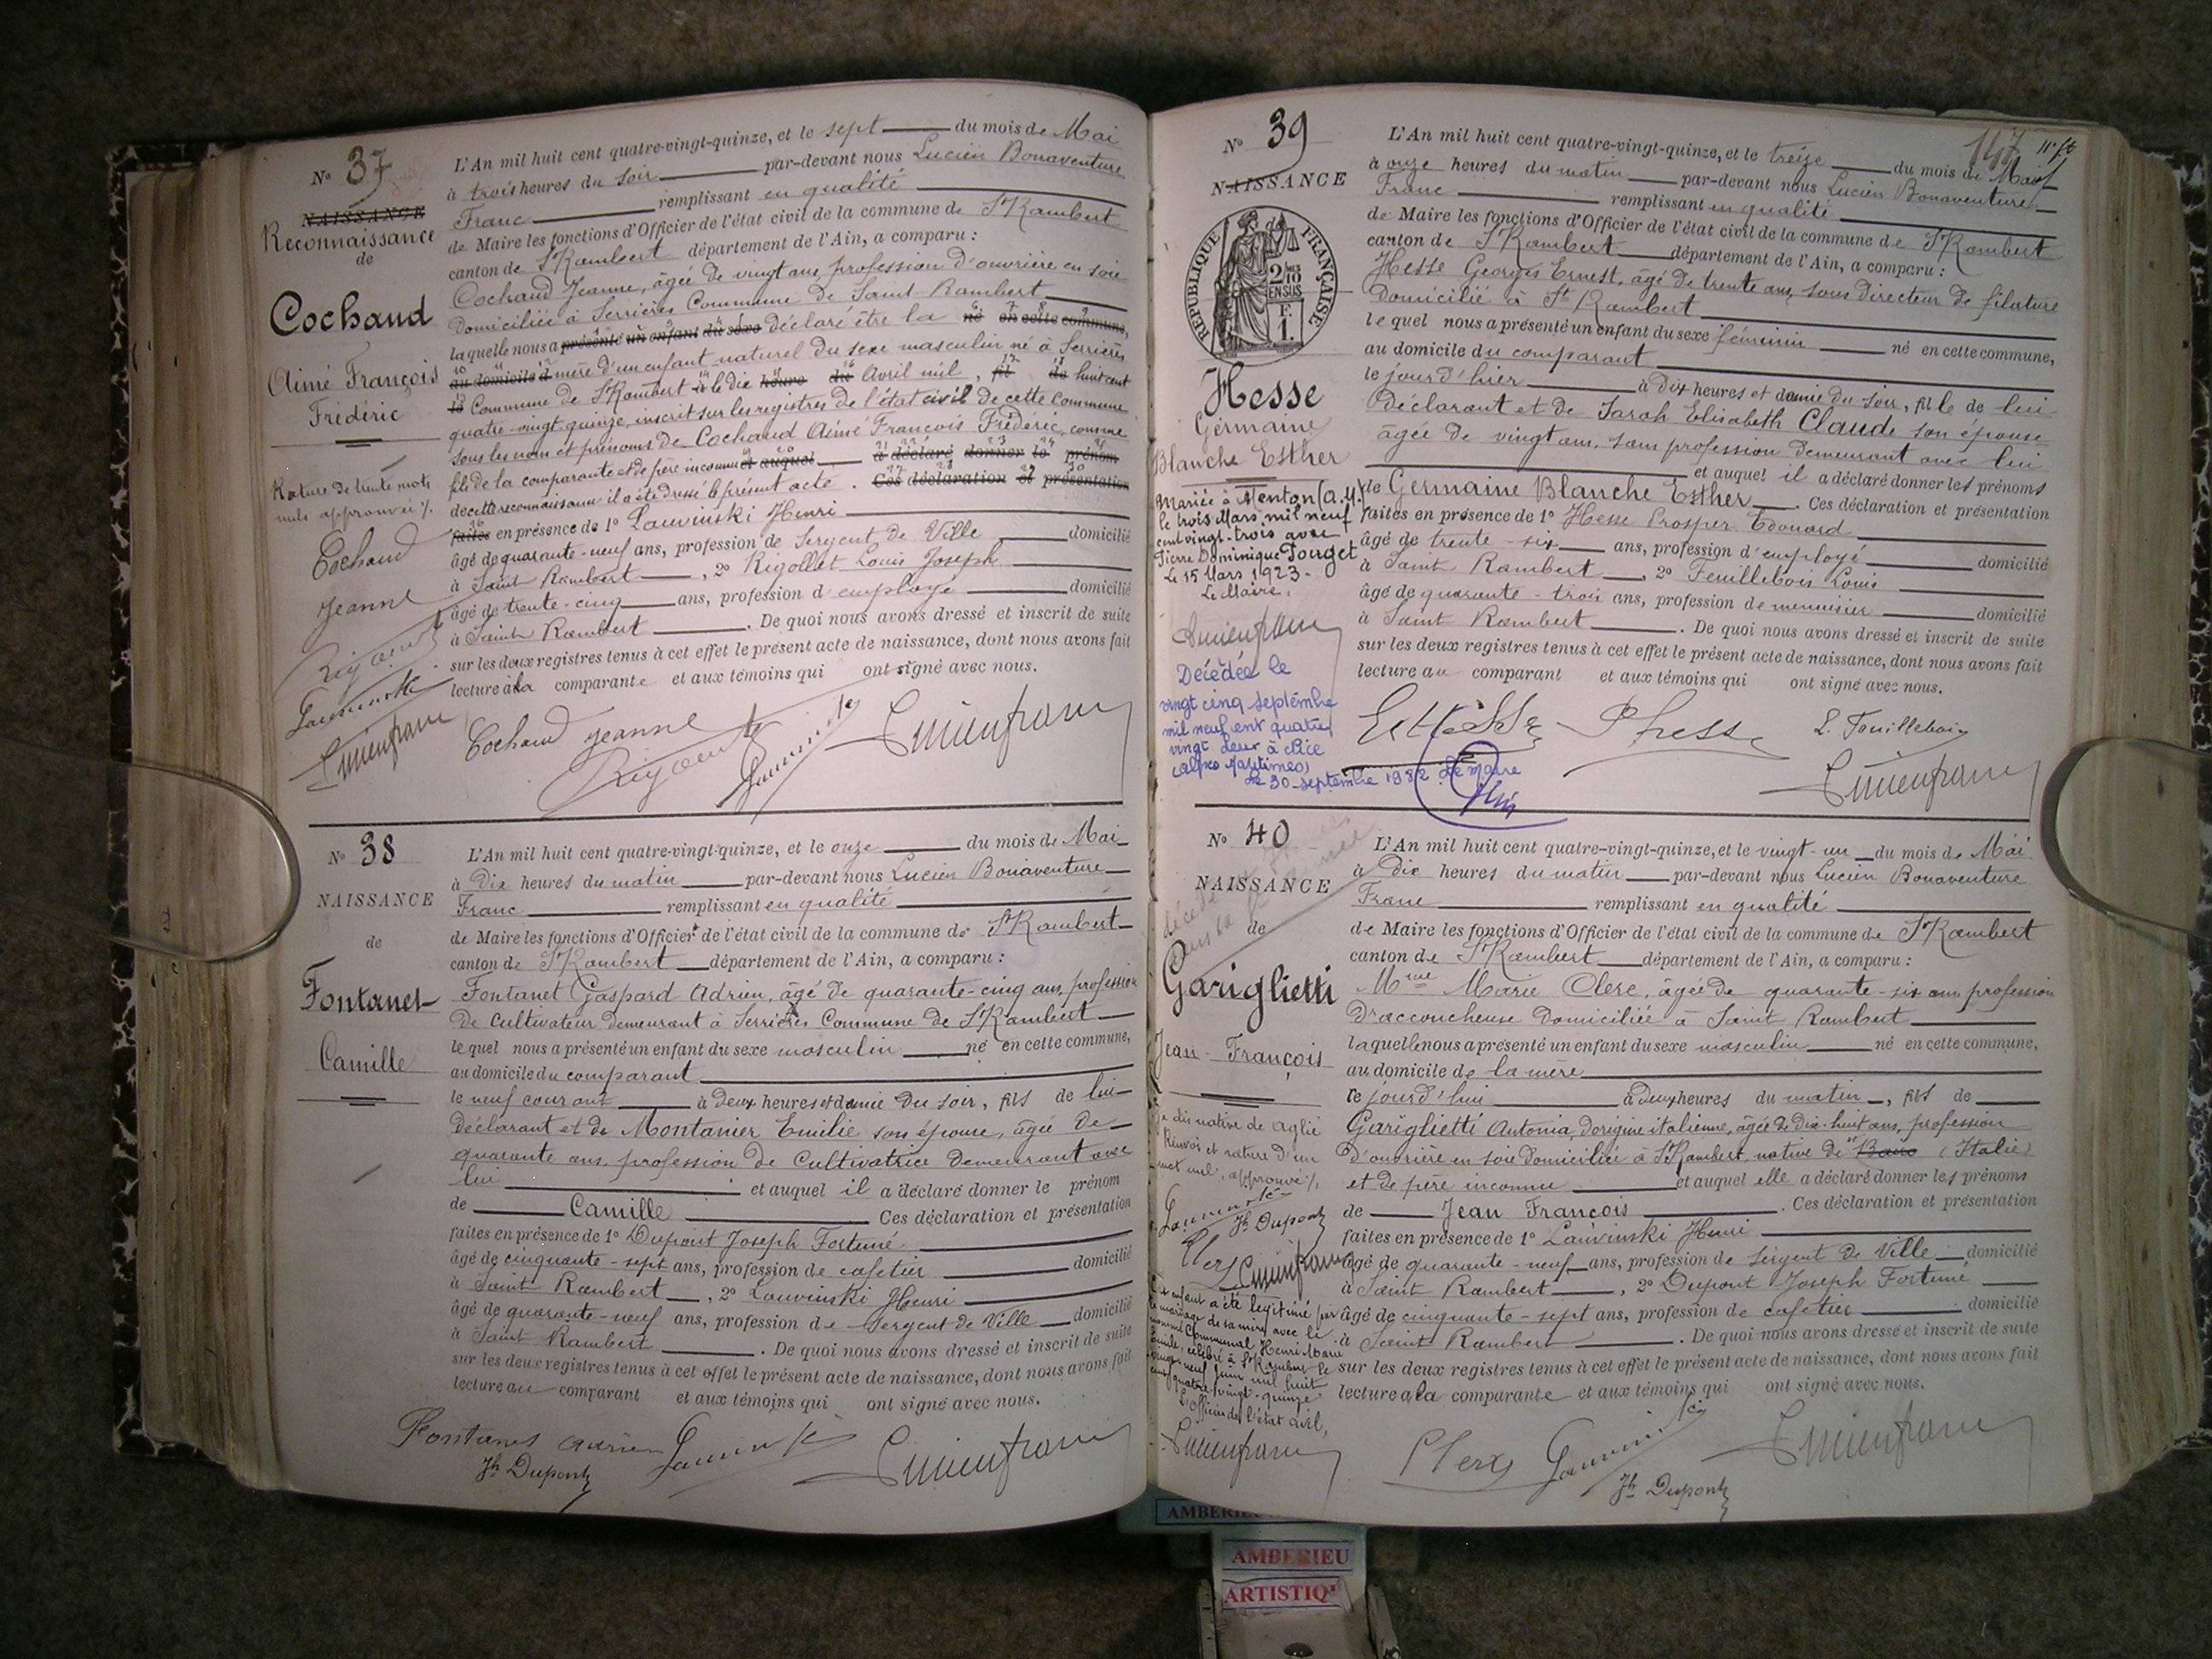 N° 37
NAISSANCE
Reconnaissance
de
Cochand
Aimé François
Frédéric
Rature de trente mots
nuls approuvée
Cochand
Jeanne
Lucienfranc
L'An mil huit cent quatre-vingt-quinze, et le sept du mois de Mai
à trois heures du soir par-devant nous Lucien Bonaventure
Franc remplissant en qualité
de Maire les fonctions d'Officier de l'état civil de la commune de St Rambert
canton de St Rambert département de l'Ain, a comparu :
Cochand Jeanne, âgée de vingt ans, profession d'ouvrière en soie
domiciliée à Serrières Commune de Saint Rambert
laquelle nous a présenté un enfant du sexe déclaré être la né en cette commune,
au domicile d mère d'un enfant naturel du sexe masculin né à Serrières
le Commune de St Rambert à le dix heure du Avril mil, fil de huit cent
quatre-vingt-quinze, inscrit sur les registres de l'état civil de cette commune
sous les nom et prénoms de Cochand Aimé François Frédéric, comme
fils de la comparante et de père inconnu et auquel a déclaré donner le prénom
de cette reconnaissance il a été dressé le présent acte. Ces déclaration et présentation
faites en présence de 1° Lauvinski Henri
âgé de quarante-neuf ans, profession de Sergent de Ville domicilié
à Saint Rambert, 2° Rigollet Louis Joseph
âgé de trente-cinq ans, profession d'employé domicilié
à Saint Rambert. De quoi nous avons dressé et inscrit de suite
sur les deux registres tenus à cet effet le présent acte de naissance, dont nous avons fait
lecture à la comparante et aux témoins qui ont signé avec nous.
Cochand Jeanne
Lucienfranc
N° 38
NAISSANCE
de
Fontanet
Camille
L'An mil huit cent quatre-vingt-quinze, et le onze du mois de Mai
à Dix heures du matin par-devant nous Lucien Bonaventure
Franc remplissant en qualité
de Maire les fonctions d'Officier de l'état civil de la commune de St Rambert
canton de St Rambert département de l'Ain, a comparu :
Fontanet Gaspard Adrien, âgé de quarante-cinq ans, profession
de Cultivateur demeurant à Serrières Commune de St Rambert
lequel nous a présenté un enfant du sexe masculin né en cette commune,
au domicile du comparant
le neuf courant à deux heures et demie du soir, fils de lui
déclarant et de Montanier Emilie son épouse, âgée de
quarante ans, profession de Cultivatrice demeurant avec
lui et auquel il a déclaré donner le prénom
de Camille Ces déclaration et présentation
faites en présence de 1° Dupont Joseph Fortuné
âgé de cinquante-sept ans, profession de cafetier domicilié
à Saint Rambert, 2° Lauvinski Henri
âgé de quarante-neuf ans, profession de Sergent de Ville domicilié
à Saint Rambert. De quoi nous avons dressé et inscrit de suite
sur les deux registres tenus à cet effet le présent acte de naissance, dont nous avons fait
lecture au comparant et aux témoins qui ont signé avec nous.
Jh Dupont
Lucienfranc
147
N° 39
NAISSANCE
de
RÉPUBLIQUE FRANÇAISE
2/10 EN SUS
1 F.
Hesse
Germaine
Blanche Esther
Mariée à Menton (A.M.)
le trois Mars mil neuf
cent vingt-trois avec
Pierre Dominique Fouget
Le 15 Mars 1923.
Le Maire,
Lucienfranc
Décédée le
vingt cinq septembre
mil neuf cent quatre
vingt deux à Nice
(Alpes Maritimes)
Le 30 septembre 1982 Le Maire
L'An mil huit cent quatre-vingt-quinze, et le treize du mois de Mai
à onze heures du matin par-devant nous Lucien Bonaventure
Franc remplissant en qualité
de Maire les fonctions d'Officier de l'état civil de la commune de St Rambert
canton de St Rambert département de l'Ain, a comparu :
Hesse Georges Ernest, âgé de trente ans, sous directeur de filature
domicilié à St Rambert
lequel nous a présenté un enfant du sexe féminin né en cette commune,
au domicile du comparant
le jour d'hier à dix heures et demie du soir, fille de lui
déclarant et de Sarah Elisabeth Claude son épouse
âgée de vingt ans sans profession demeurant avec lui
et auquel il a déclaré donner les prénoms
de Germaine Blanche Esther. Ces déclaration et présentation
faites en présence de 1° Hesse Prosper Edouard
âgé de trente-six ans, profession d'employé domicilié
à Saint Rambert, 2° Feuillebois Louis
âgé de quarante-trois ans, profession de menuisier domicilié
à Saint Rambert. De quoi nous avons dressé et inscrit de suite
sur les deux registres tenus à cet effet le présent acte de naissance, dont nous avons fait
lecture au comparant et aux témoins qui ont signé avec nous.
P Hesse
L. Feuillebois
Lucienfranc
N° 40
NAISSANCE
de
Gariglietti
Jean-François
je dis native de Aglié
Renvoi et rature d'un
mot nul, approuvé
Jh Dupont
Clerc
Lucienfranc
Cet enfant a été légitimé par
le mariage de sa mère avec le
nommé Communal Henri Marie
Emile, célébré à St Rambert le
vingt-neuf Juin mil huit
cent quatre-vingt-quinze
L'officier de l'état civil,
Lucienfranc
L'An mil huit cent quatre-vingt-quinze, et le vingt-un du mois de Mai
à Dix heures du matin par-devant nous Lucien Bonaventure
Franc remplissant en qualité
de Maire les fonctions d'Officier de l'état civil de la commune de St Rambert
canton de St Rambert département de l'Ain, a comparu :
Mme Marie Clerc, âgée de quarante-six ans, profession
d'accoucheuse domiciliée à Saint Rambert
laquelle nous a présenté un enfant du sexe masculin né en cette commune,
au domicile de la mère
le jour d'hui à deux heures du matin, fils de
Gariglietti Antonia, d'origine italienne, âgée de dix-huit ans, profession
d'ouvrière en soie domiciliée à St Rambert, native de Bairo (Italie)
et de père inconnu et auquel elle a déclaré donner les prénoms
de Jean François. Ces déclaration et présentation
faites en présence de 1° Lauvinski Henri
âgé de quarante-neuf ans, profession de Sergent de Ville domicilié
à Saint Rambert, 2° Dupont Joseph Fortuné
âgé de cinquante-sept ans, profession de cafetier domicilié
à Saint Rambert. De quoi nous avons dressé et inscrit de suite
sur les deux registres tenus à cet effet le présent acte de naissance, dont nous avons fait
lecture à la comparante et aux témoins qui ont signé avec nous.
Clerc
Jh Dupont
Lucienfranc
AMBERIEU
AMBERIEU
ARTISTIQ